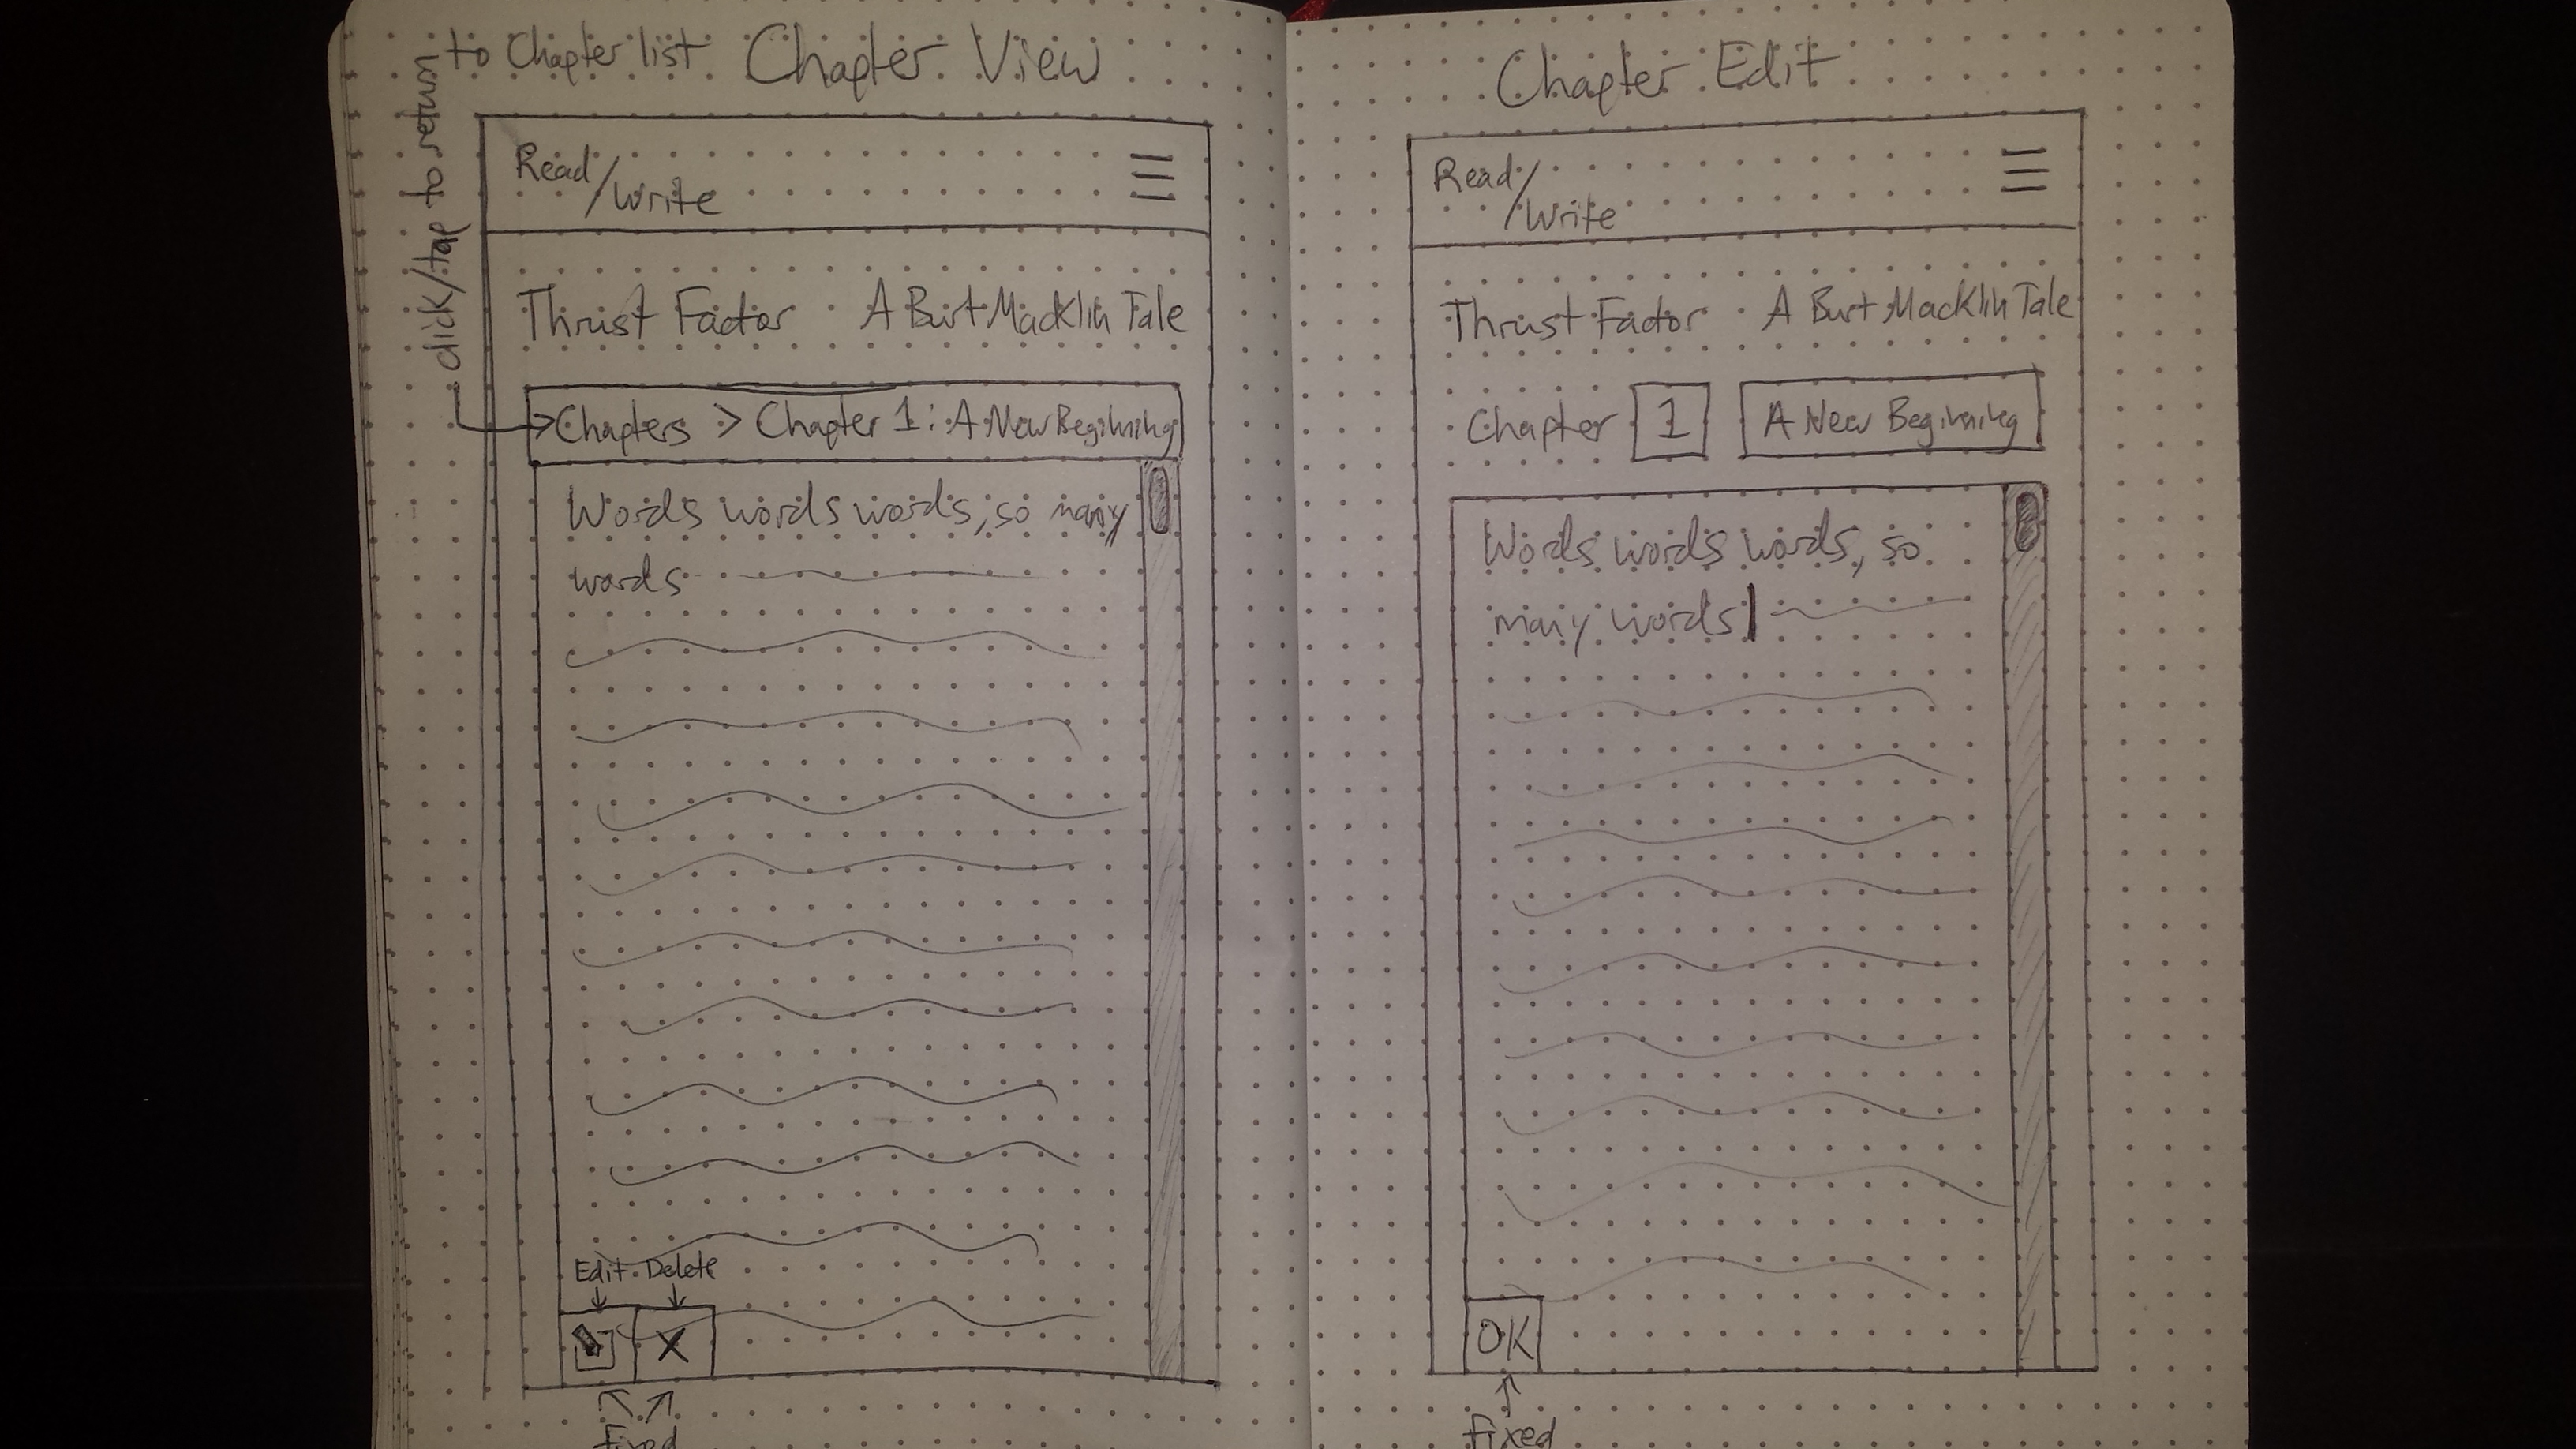 Chapter View
click/tap to return to Chapter list
Read/Write
Thrust Factor A Burt Macklin Tale
Chapters > Chapter 1: A New Beginning
Words words words, so many
words
Edit Delete
X
fixed
Chapter Edit
Read/Write
Thrust Factor A Burt Macklin Tale
Chapter 1 A New Beginning
Words words words, so
many words|
OK
fixed